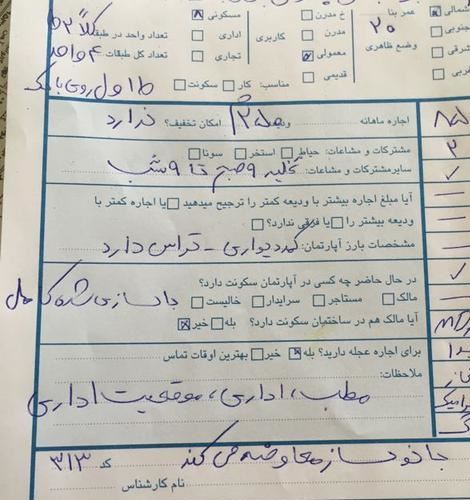 شمالی عمر بنا ۲۰ خ مدرن مسکونی تعداد واحد در طبقه
جنوبی مدرن کاربری اداری تعداد کل طبقات ۴ واحد
شرقی وضع ظاهری معمولی تجاری
غربی قدیمی مناسب: کار سکونت ط اول روی بانک
اجاره ماهانه ودیعه امکان تخفیف؟ ندارد
مشترکات و مشاعات: حیاط استخر سونا
سایر مشترکات و مشاعات: تخلیه ۹ صبح تا ۹ شب
آیا مبلغ اجاره بیشتر با ودیعه کمتر را ترجیح میدهید یا اجاره کمتر با
ودیعه بیشتر را یا فرقی ندارد؟
مشخصات بارز آپارتمان: کمد دیواری - تراس دارد
در حال حاضر چه کسی در آپارتمان سکونت دارد؟
مالک مستاجر سرایدار خالیست بازسازی شده کامل
آیا مالک هم در ساختمان سکونت دارد؟ بله خیر
برای اجاره عجله دارید؟ بله خیر بهترین اوقات تماس
ملاحظات:
مطب، اداری، موقعیت اداری
با نوساز معاوضه می کند کد ۳۱۳
نام کارشناس